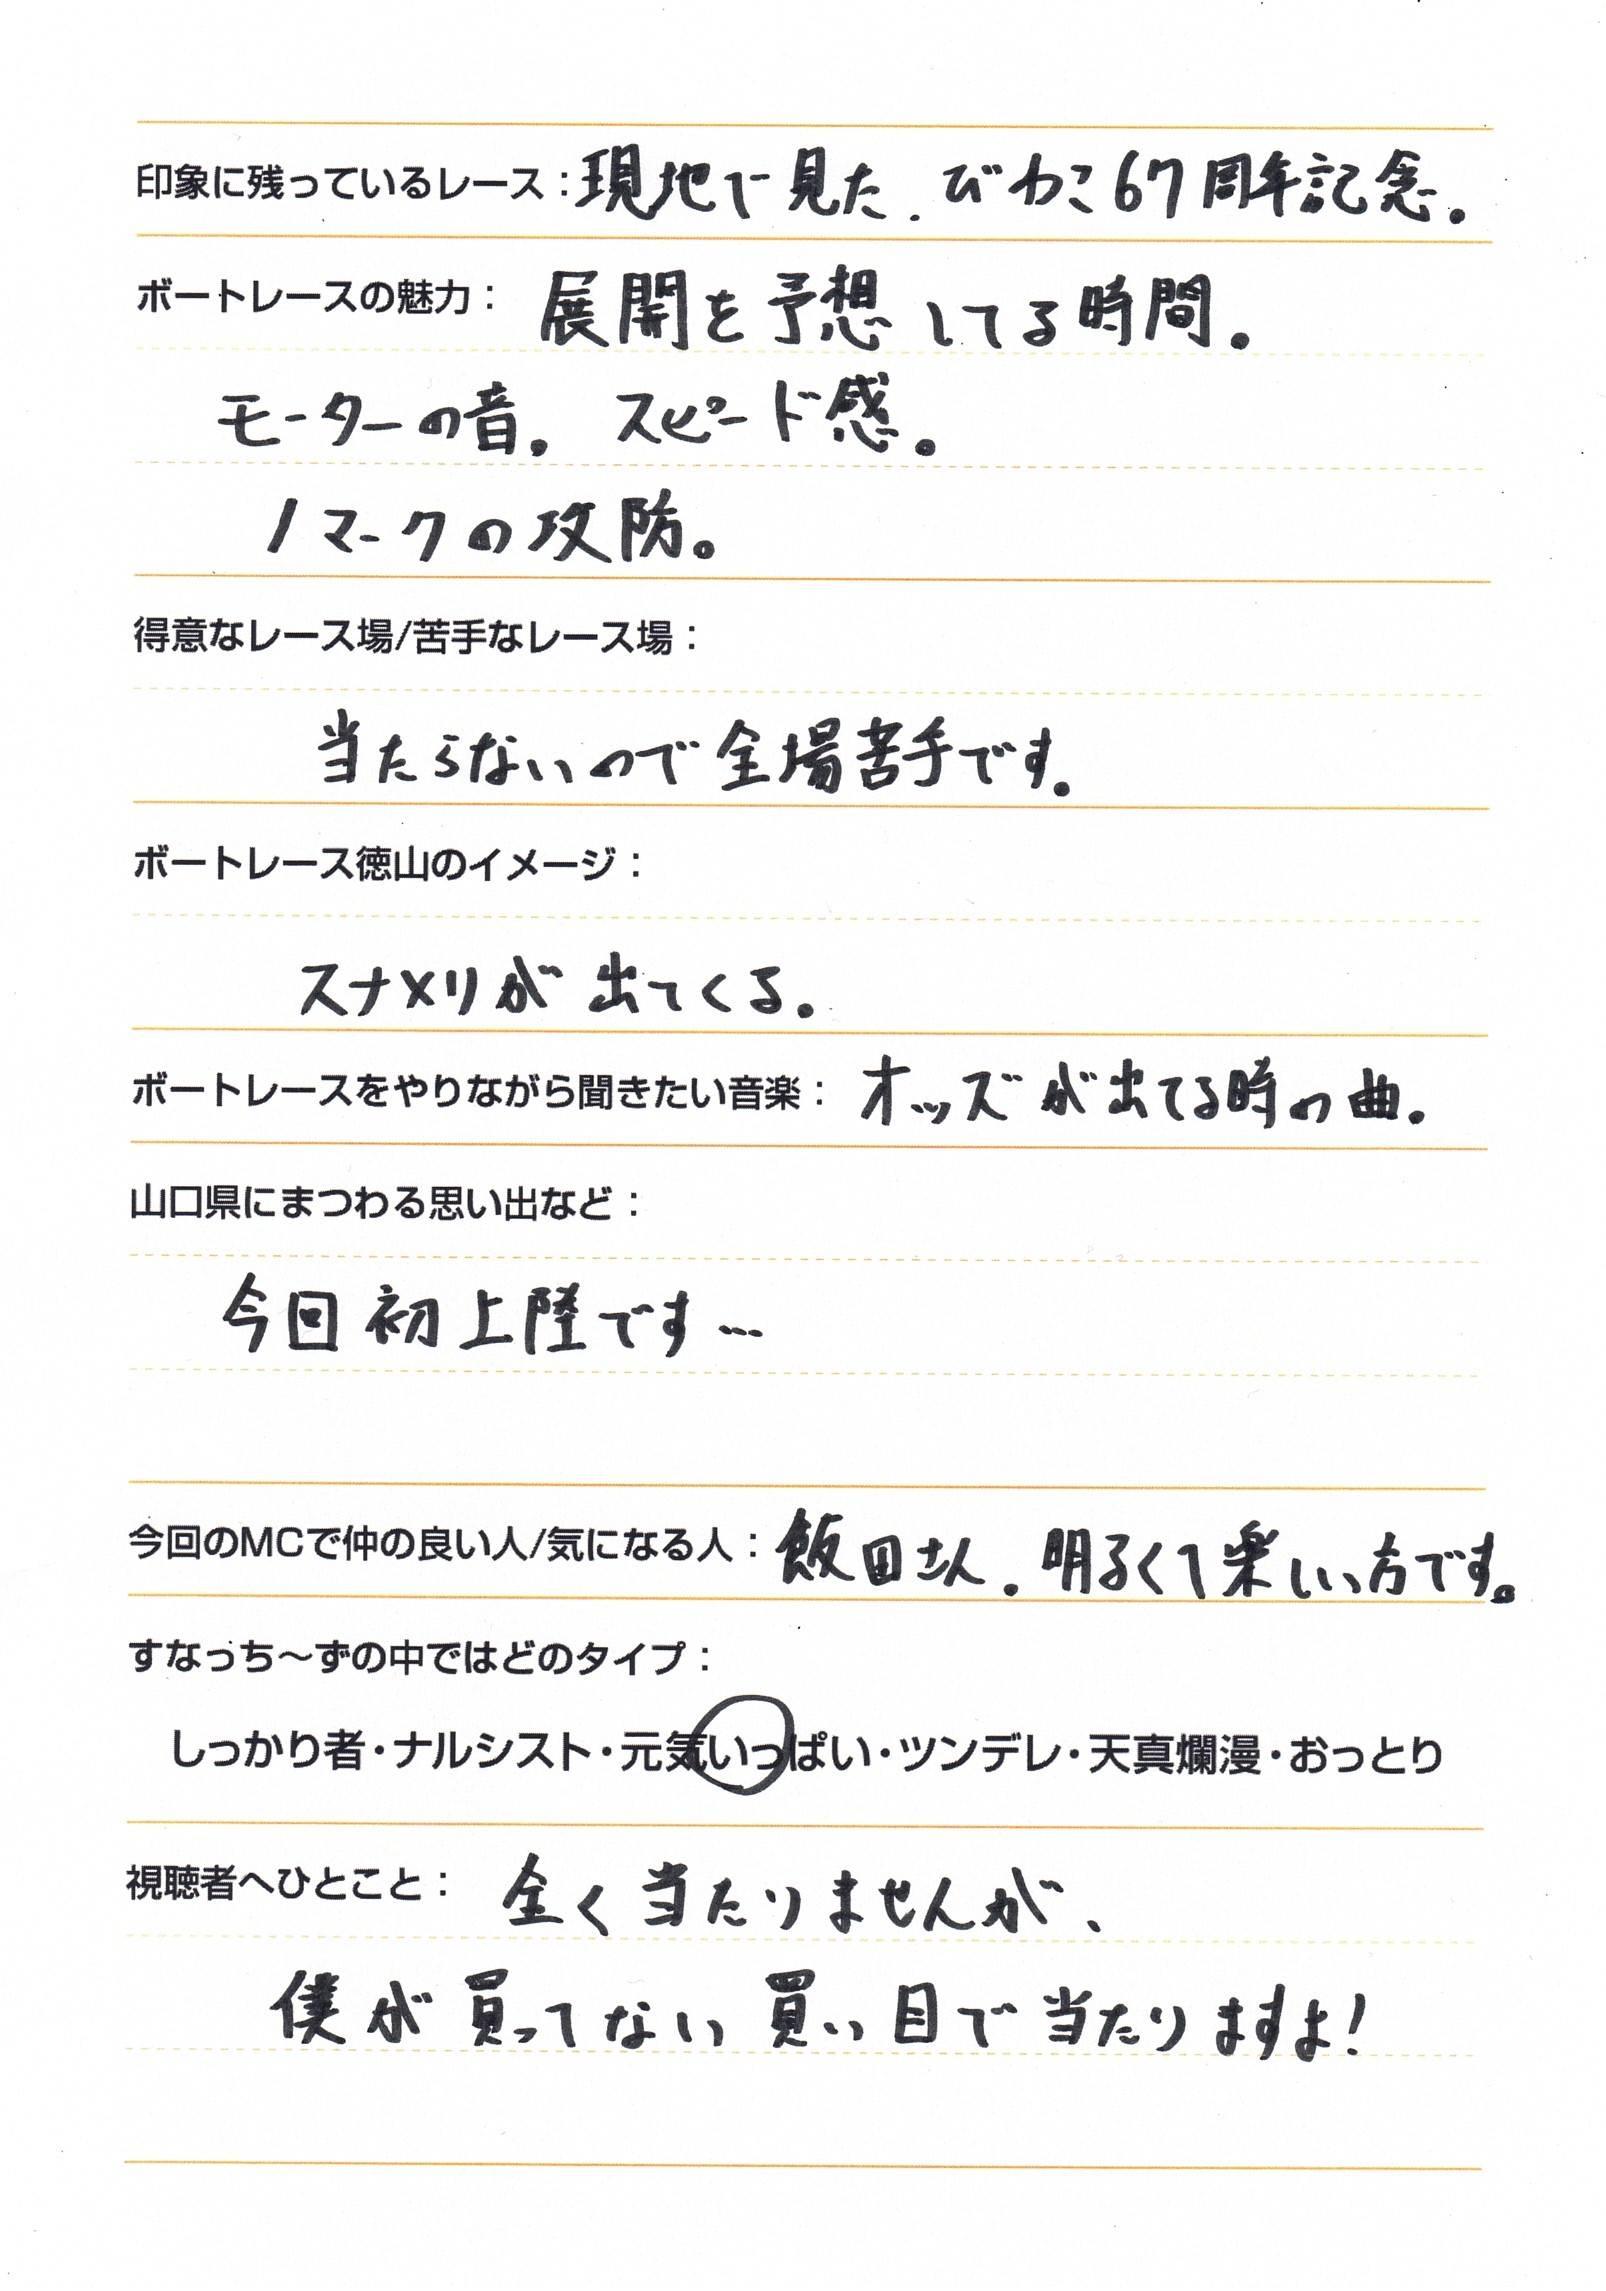 印象に残っているレース：現地で見た、びわこ67周年記念。
ボートレースの魅力： 展開を予想してる時間。
モーターの音。 スピード感。
1マークの攻防。
得意なレース場/苦手なレース場：
当たらないので全場苦手です。
ボートレース徳山のイメージ：
スナメリが出てくる。
ボートレースをやりながら聞きたい音楽： オッズが出てる時の曲。
山口県にまつわる思い出など：
今回初上陸です…
今回のMCで仲の良い人/気になる人： 飯田さん。明るくて楽しい方です。
すなっち～ずの中ではどのタイプ：
しっかり者・ナルシスト・元気いっぱい・ツンデレ・天真爛漫・おっとり
視聴者へひとこと： 全く当たりませんが、
僕が買ってない買い目で当たりますよ!